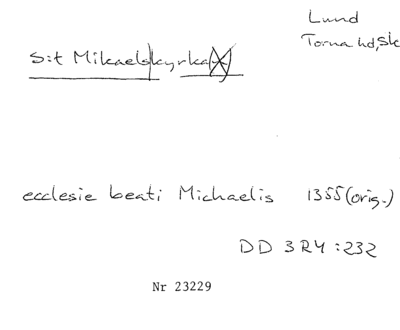 Lund
Torna hd, Sk
S:t Mikaels kyrka
ecclesie beati Michaelis 1355 (orig.)
DD 3R4:232
Nr 23229